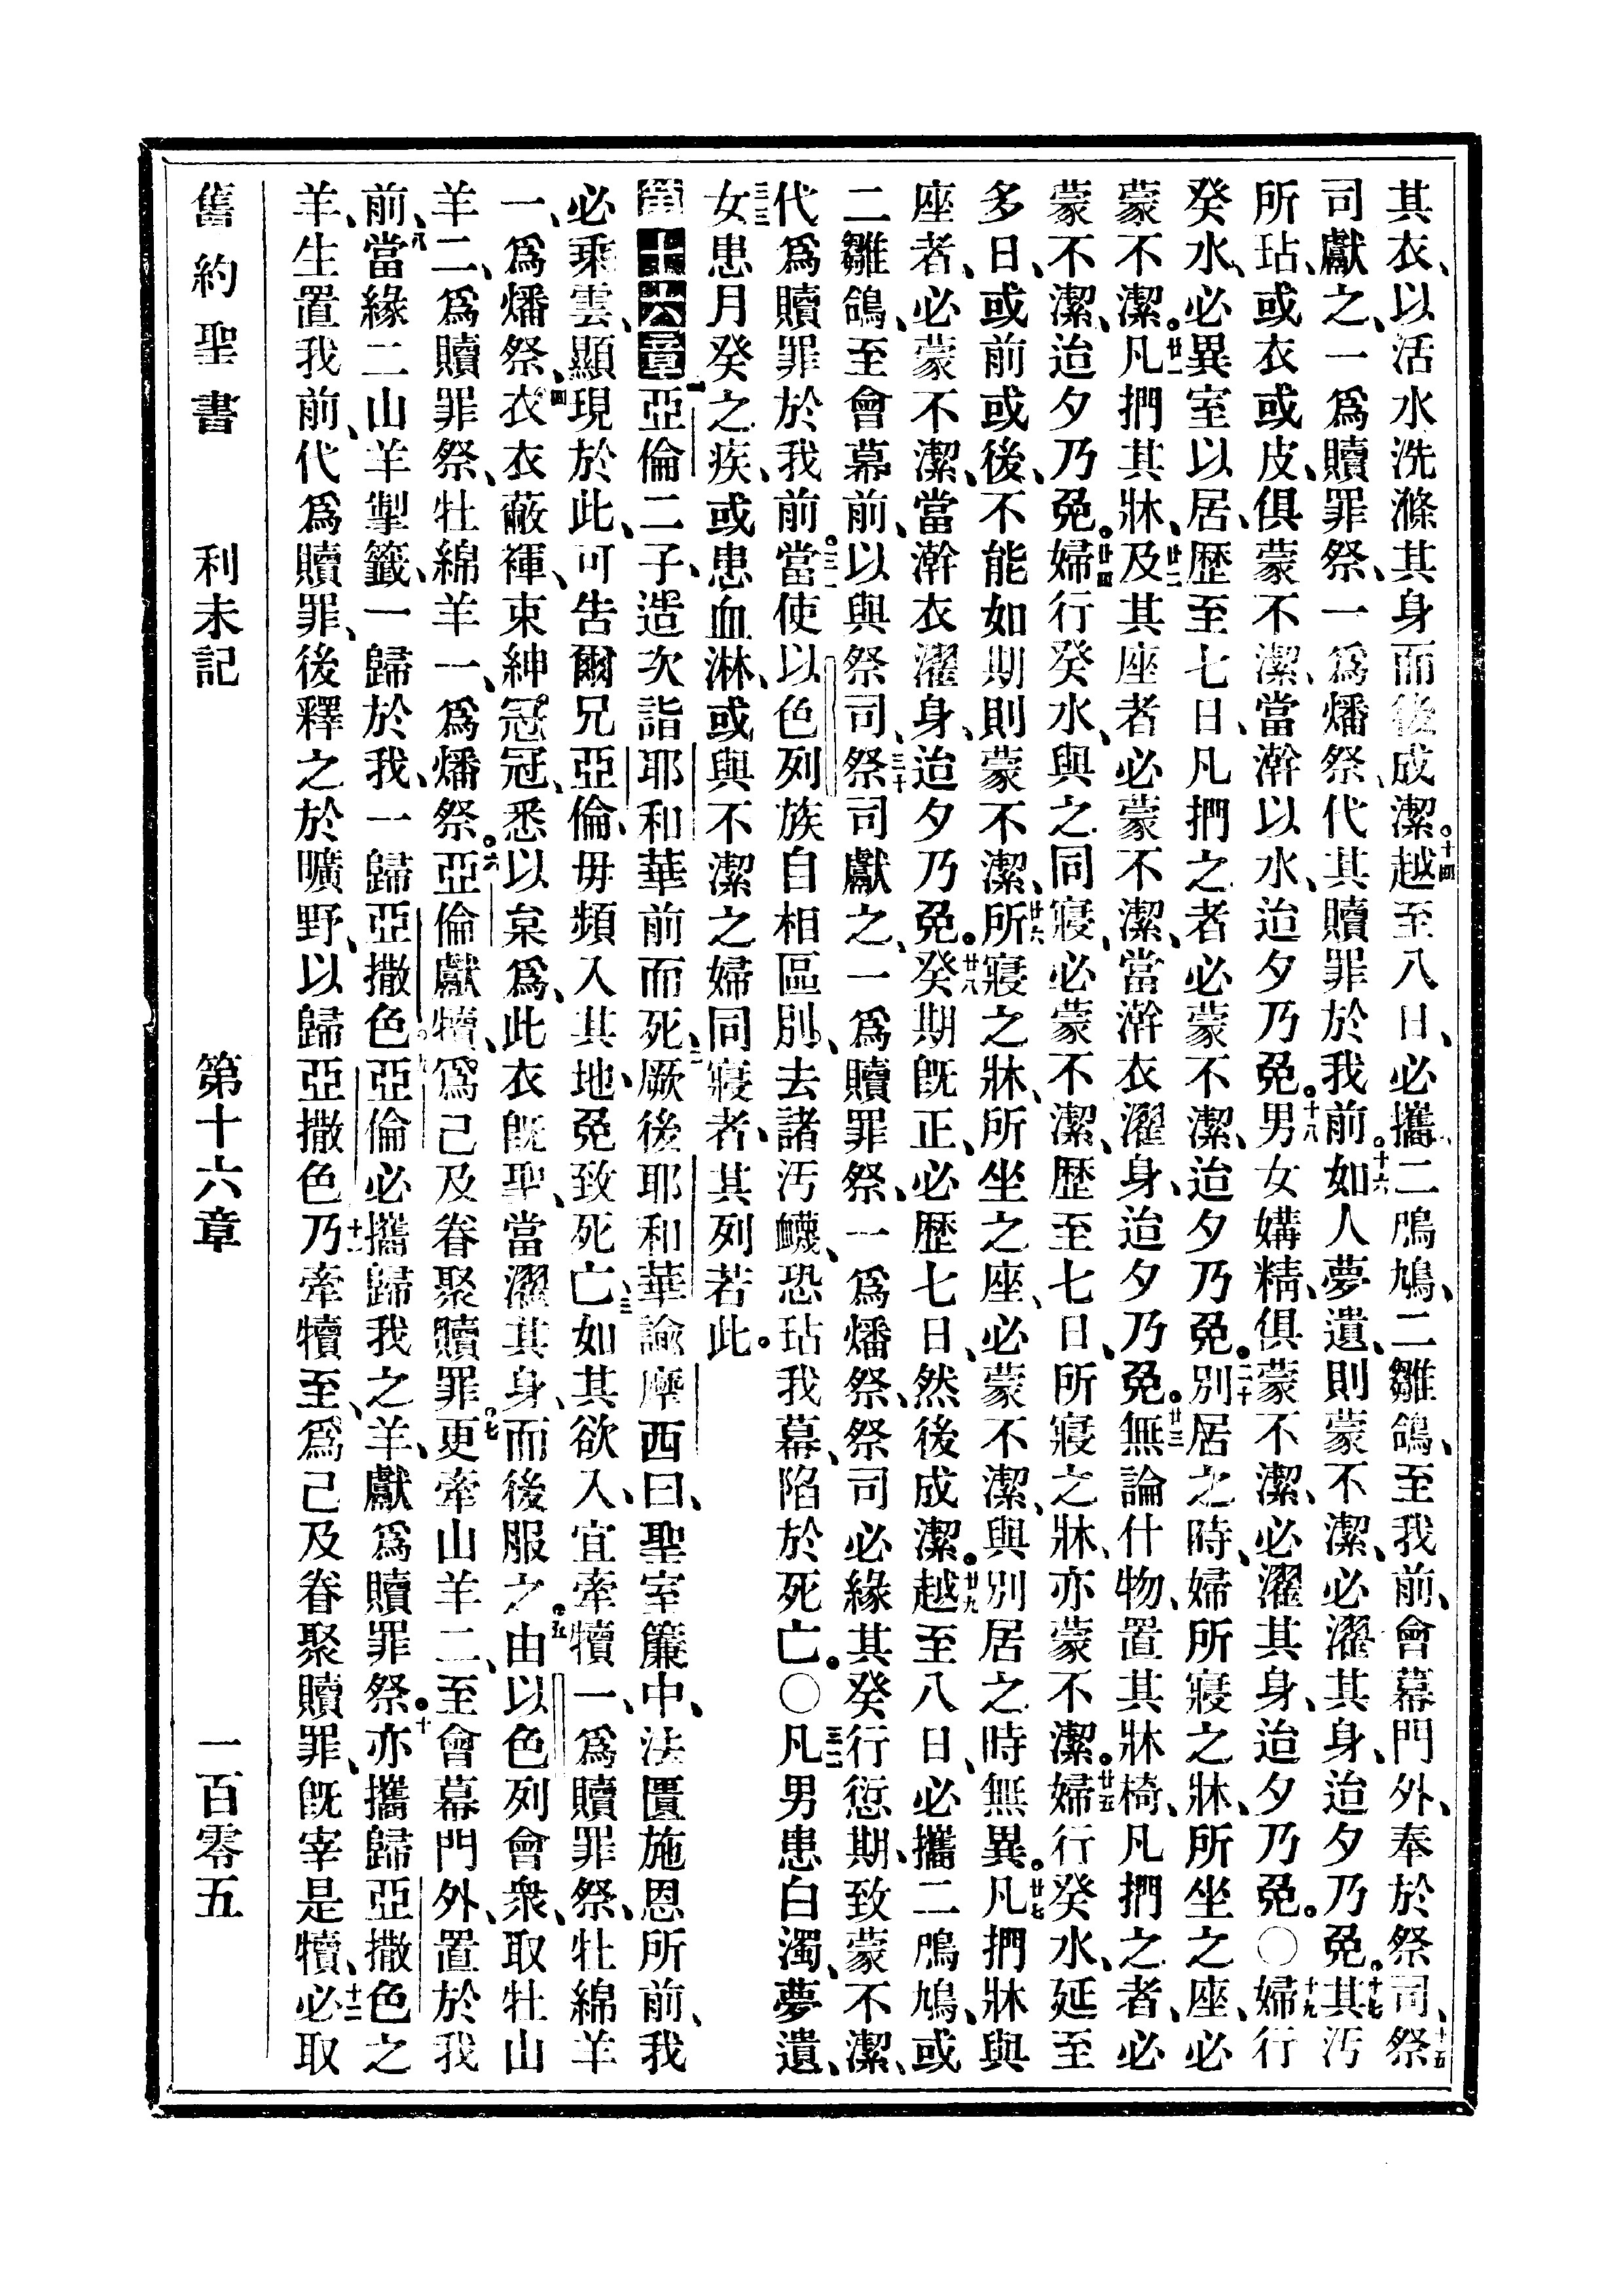 其衣、以活水洗滌其身而後成潔。十四越至八日、必攜二鳲鳩、二雛鴿、至我前、會幕門外、奉於祭司、十五祭
司獻之、一爲贖罪祭、一爲燔祭、代其贖罪於我前。十六如人夢遺、則蒙不潔、必濯其身、迨夕乃免。十七其汚
所玷、或衣或皮、俱蒙不潔、當澣以水、迨夕乃免。十八男女媾精、俱蒙不潔、必濯其身、迨夕乃免。〇十九婦行
癸水、必異室以居、歷至七日、凡捫之者、必蒙不潔、迨夕乃免。二十別居之時、婦所寢之牀、所坐之座、必
蒙不潔。廿一凡捫其牀、廿二及其座者、必蒙不潔、當澣衣濯身、迨夕乃免。廿三無論什物、置其牀椅、凡捫之者、必
蒙不潔、迨夕乃免。廿四婦行癸水、與之同寢、必蒙不潔、歷至七日、所寢之牀、亦蒙不潔。廿五婦行癸水、延至
多日、或前或後、不能如期、則蒙不潔、廿六所寢之牀、所坐之座、必蒙不潔、與別居之時無異。廿七凡捫牀與
座者、必蒙不潔、當澣衣濯身、迨夕乃免。廿八癸期既正、必歷七日、然後成潔。廿九越至八日、必攜二鳲鳩、或
二雛鴿、至會幕前、以與祭司、三十祭司獻之、一爲贖罪祭、一爲燔祭、祭司必緣其癸行愆期、致蒙不潔、
代爲贖罪於我前。三一當使以色列族自相區別、去諸汚衊、恐玷我幕、陷於死亡。〇三二凡男患白濁、夢遺、
三三女患月癸之疾、或患血淋、或與不潔之婦同寢者、其列若此。
第十六章一亞倫二子、造次詣耶和華前而死、二厥後耶和華諭摩西曰、聖室簾中、法匱施恩所前、我
必乘雲、顯現於此、可告爾兄亞倫、毋頻入其地、免致死亡、三如其欲入、宜牽犢一、爲贖罪祭、牡綿羊
一、爲燔祭、四衣衣蔽褌、束紳冠冠、悉以枲爲、此衣旣聖、當濯其身、而後服之。五由以色列會衆、取牡山
羊二、爲贖罪祭、牡綿羊一、爲燔祭。六亞倫獻犢、爲己及眷聚贖罪。七更牽山羊二、至會幕門外、置於我
前、八當緣二山羊掣籤、一歸於我、一歸亞撒色。九亞倫必攜歸我之羊、獻爲贖罪祭。十亦攜歸亞撒色之
羊、生置我前、代爲贖罪、後釋之於曠野、以歸亞撒色、十一乃牽犢至、爲己及眷聚贖罪、旣宰是犢、十二必取
舊約聖書　利未記　第十六章　一百零五